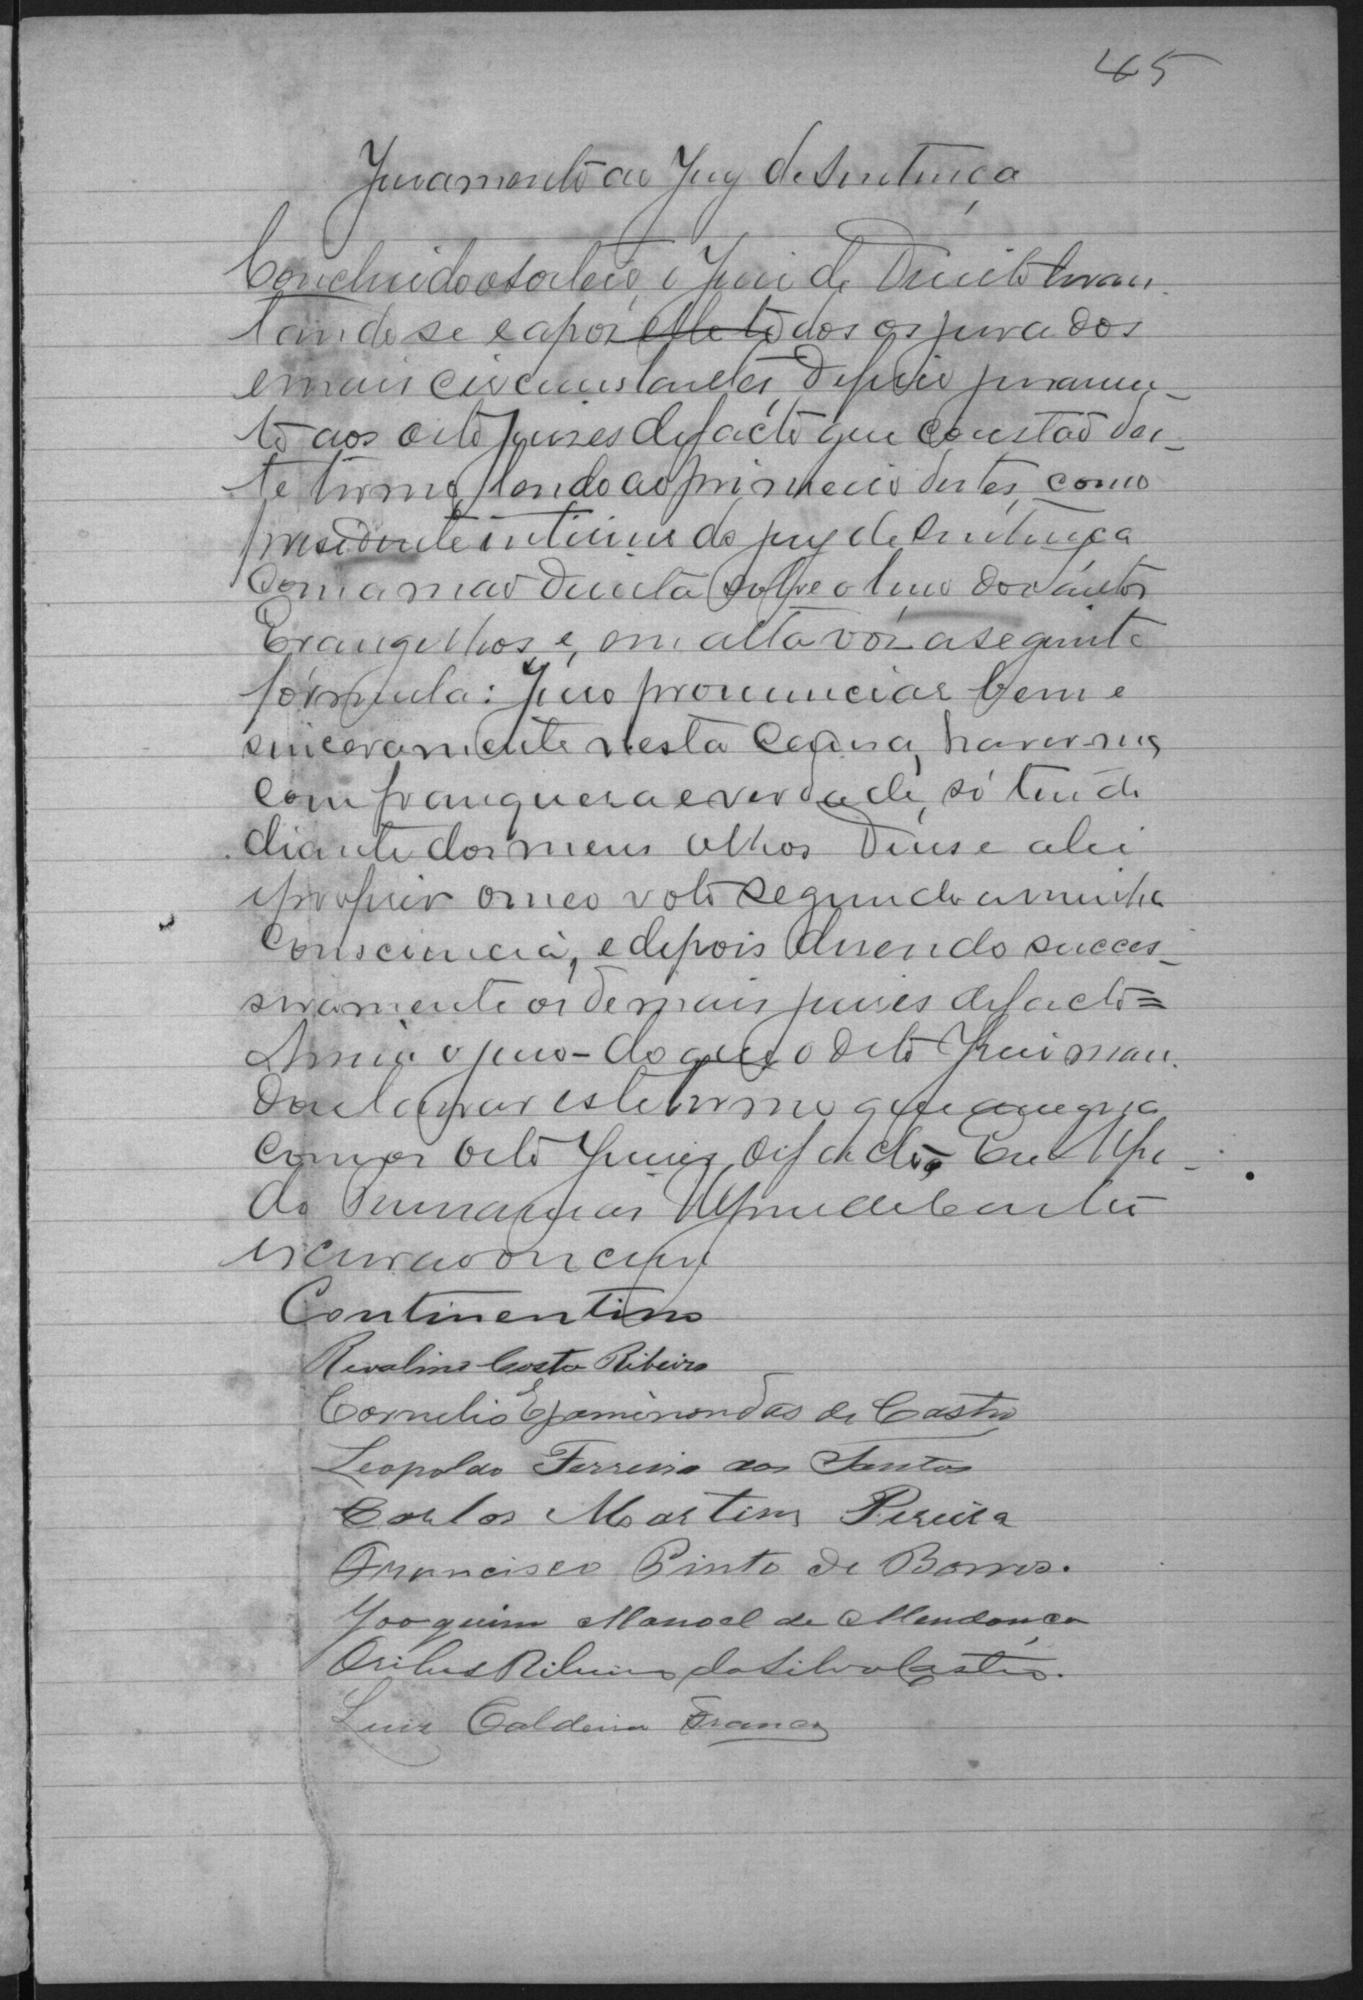 45
Juramento ao Jury de Sentença
Concluido o sorteio, o Juiz de Direito levan-
tando se e apoz elle todos os jurados
e mais circunstantes, deferio juramen-
to aos oito juizes de facto que constão des-
te termo, lendo ao primeiro destes, como
presidente interino do jury de sentença
com a mão direita sobre o livro dos Santos
Evangelhos, e, em alta voz a seguinte
fórmula: Juro pronunciar bem e
sinceramente nesta causa, haver-me
com franqueza e verdade, só tendo
diante dos meus olhos Deus e a lei
e proferir o meo voto segundo a minha
consciencia, e depois dizendo succes-
sivamente os demais juizes de facto =
Assim o juro - do que o dito Juiz man-
dou lavrar este termo que assigna
com os oito Juizes de facto. Eu
de Castro
escrivão
Continentino
Rivalino Costa Ribeiro
Cornelio Epaminondas de Castro
Leopoldo Ferreira dos Santos
Carlos Martins Pereira
Francisco Pinto de Barros.
Joaquim Manoel de Mendonça
Ribeiro da Silva Castro.
Luiz Caldeira Franco